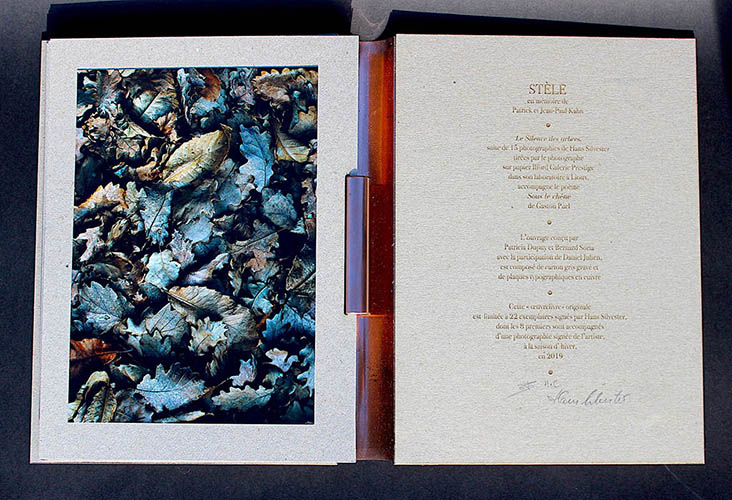 STÈLE
en mémoire de
Patrick et Jean-Paul Kahn
Le Silence des arbres,
suite de 15 photographies de Hans Silvester
tirées par le photographe
sur papier Ilford Galerie Prestige
dans son laboratoire à Lioux,
accompagne le poème
Sous le chêne
de Gaston Puel
L'ouvrage conçu par
Patricia Dupuy et Bernard Soria
avec la participation de Daniel Julien,
est composé de carton gris gravé et
de plaques typographiques en cuivre
Cette « œuvrelivre » originale
est limitée à 22 exemplaires signés par Hans Silvester,
dont les 8 premiers sont accompagnés
d'une photographie signée de l'artiste,
à la saison d'hiver,
en 2019
H.C
Hans Silvester